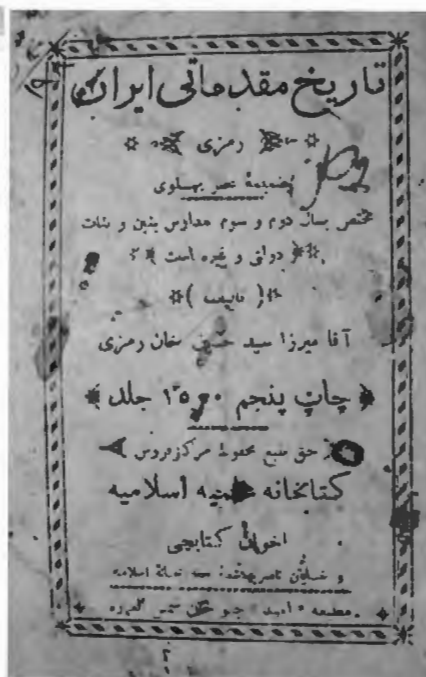 تاریخ مقدماتی ایران
رمزی
بضمیمهٔ عصر پهلوی
مختص بسال دوم و سوم مدارس بنین و بنات
دولتی و غیره است
( تألیف )
آقا میرزا سید حسین خان رمزی
چاپ پنجم جلد
حق طبع محفوظ مرکز فروش
کتابخانه علمیه اسلامیه
اخوان کتابچی
مطبعه « امید »